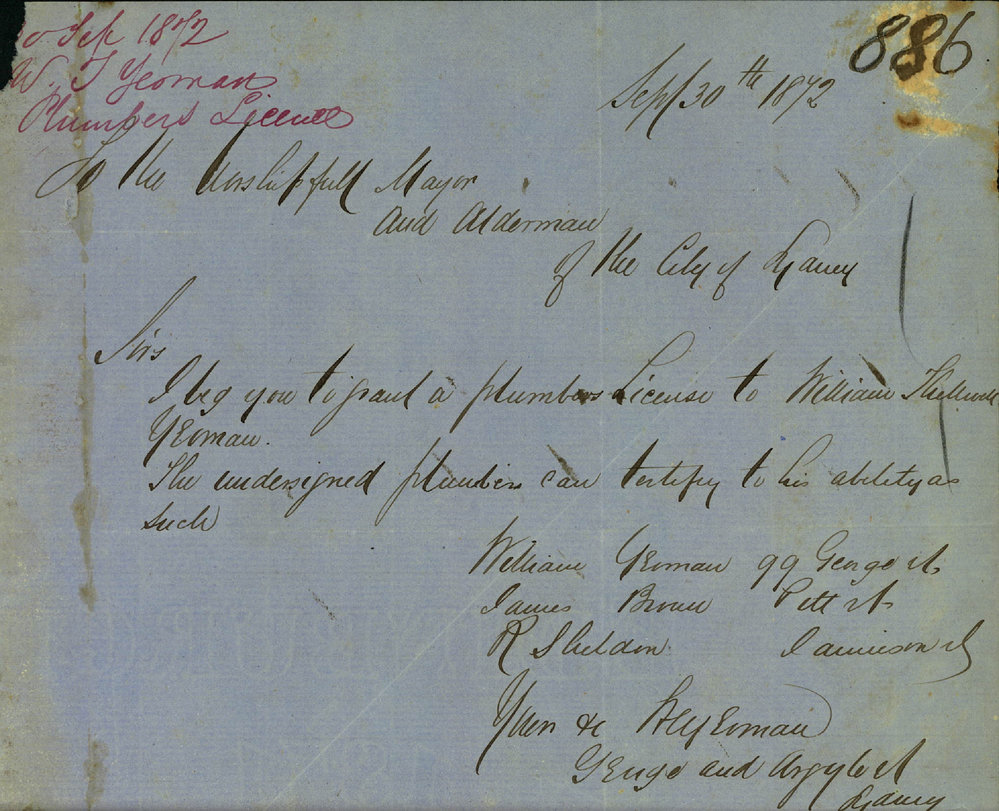 0 Sep 1872
W. T Yeoman
Plumbers License
886
Sept 30th 1872
To the Worshipfull Mayor
and Alderman
of the City of Sydney
Sirs
I beg you to grant a plumbers License to William
Yeoman.
The undersigned plumbers can testify to his ability as
such
William Yeoman 99 George st
James Brown Pitt st
R Sheldon Jamieson st
Yours &c W Yeoman
George and Argyle st
Sydney